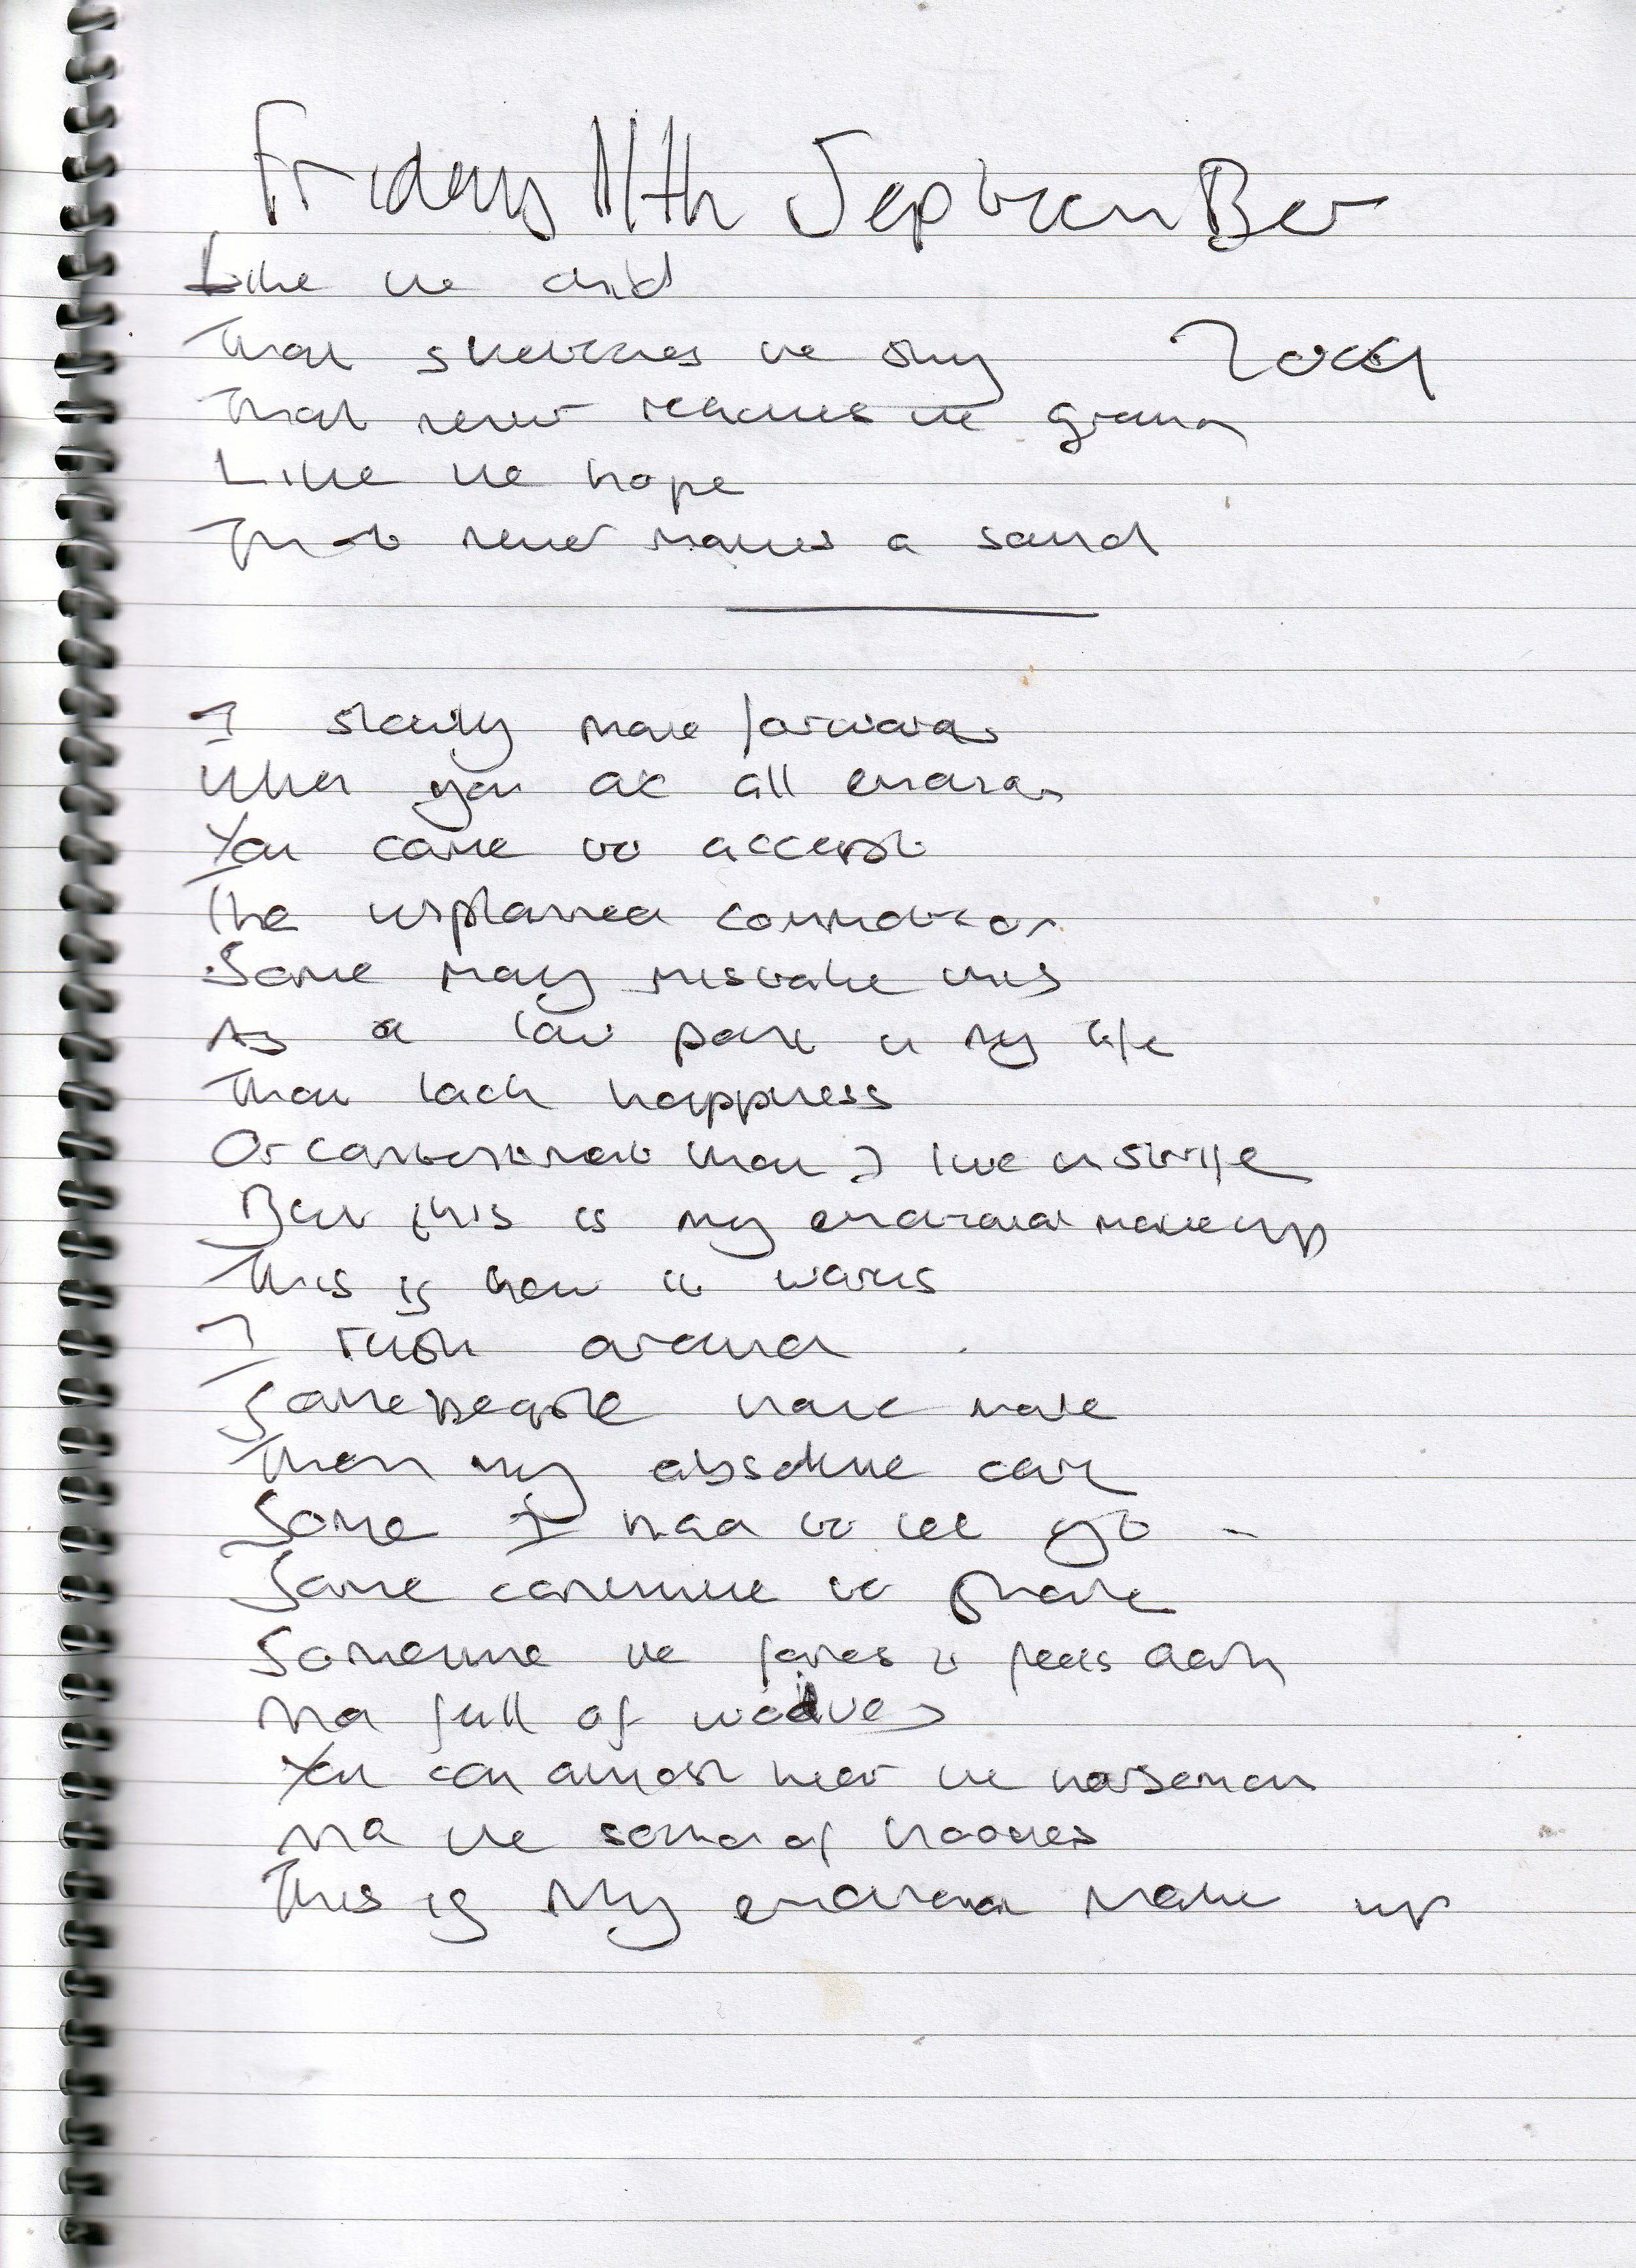 Friday 11th September
Like the child
That sketches the sky
2009
That never reaches the ground
Like the hope
That never makes a sound
I slowly move forward
When you at all
You come to accept
The unplanned
Some may mistake this
As a low part in my life
That lack happiness
Or that I live in strife
But this is my makeup
This is how it works
I rush around
Some people have more
Than my absolute care
Some I had to let go
Some continue to
Sometime the forest feels dark
And full of wolves
You can almost hear the horseman
And the sound of hooves
This is My make up